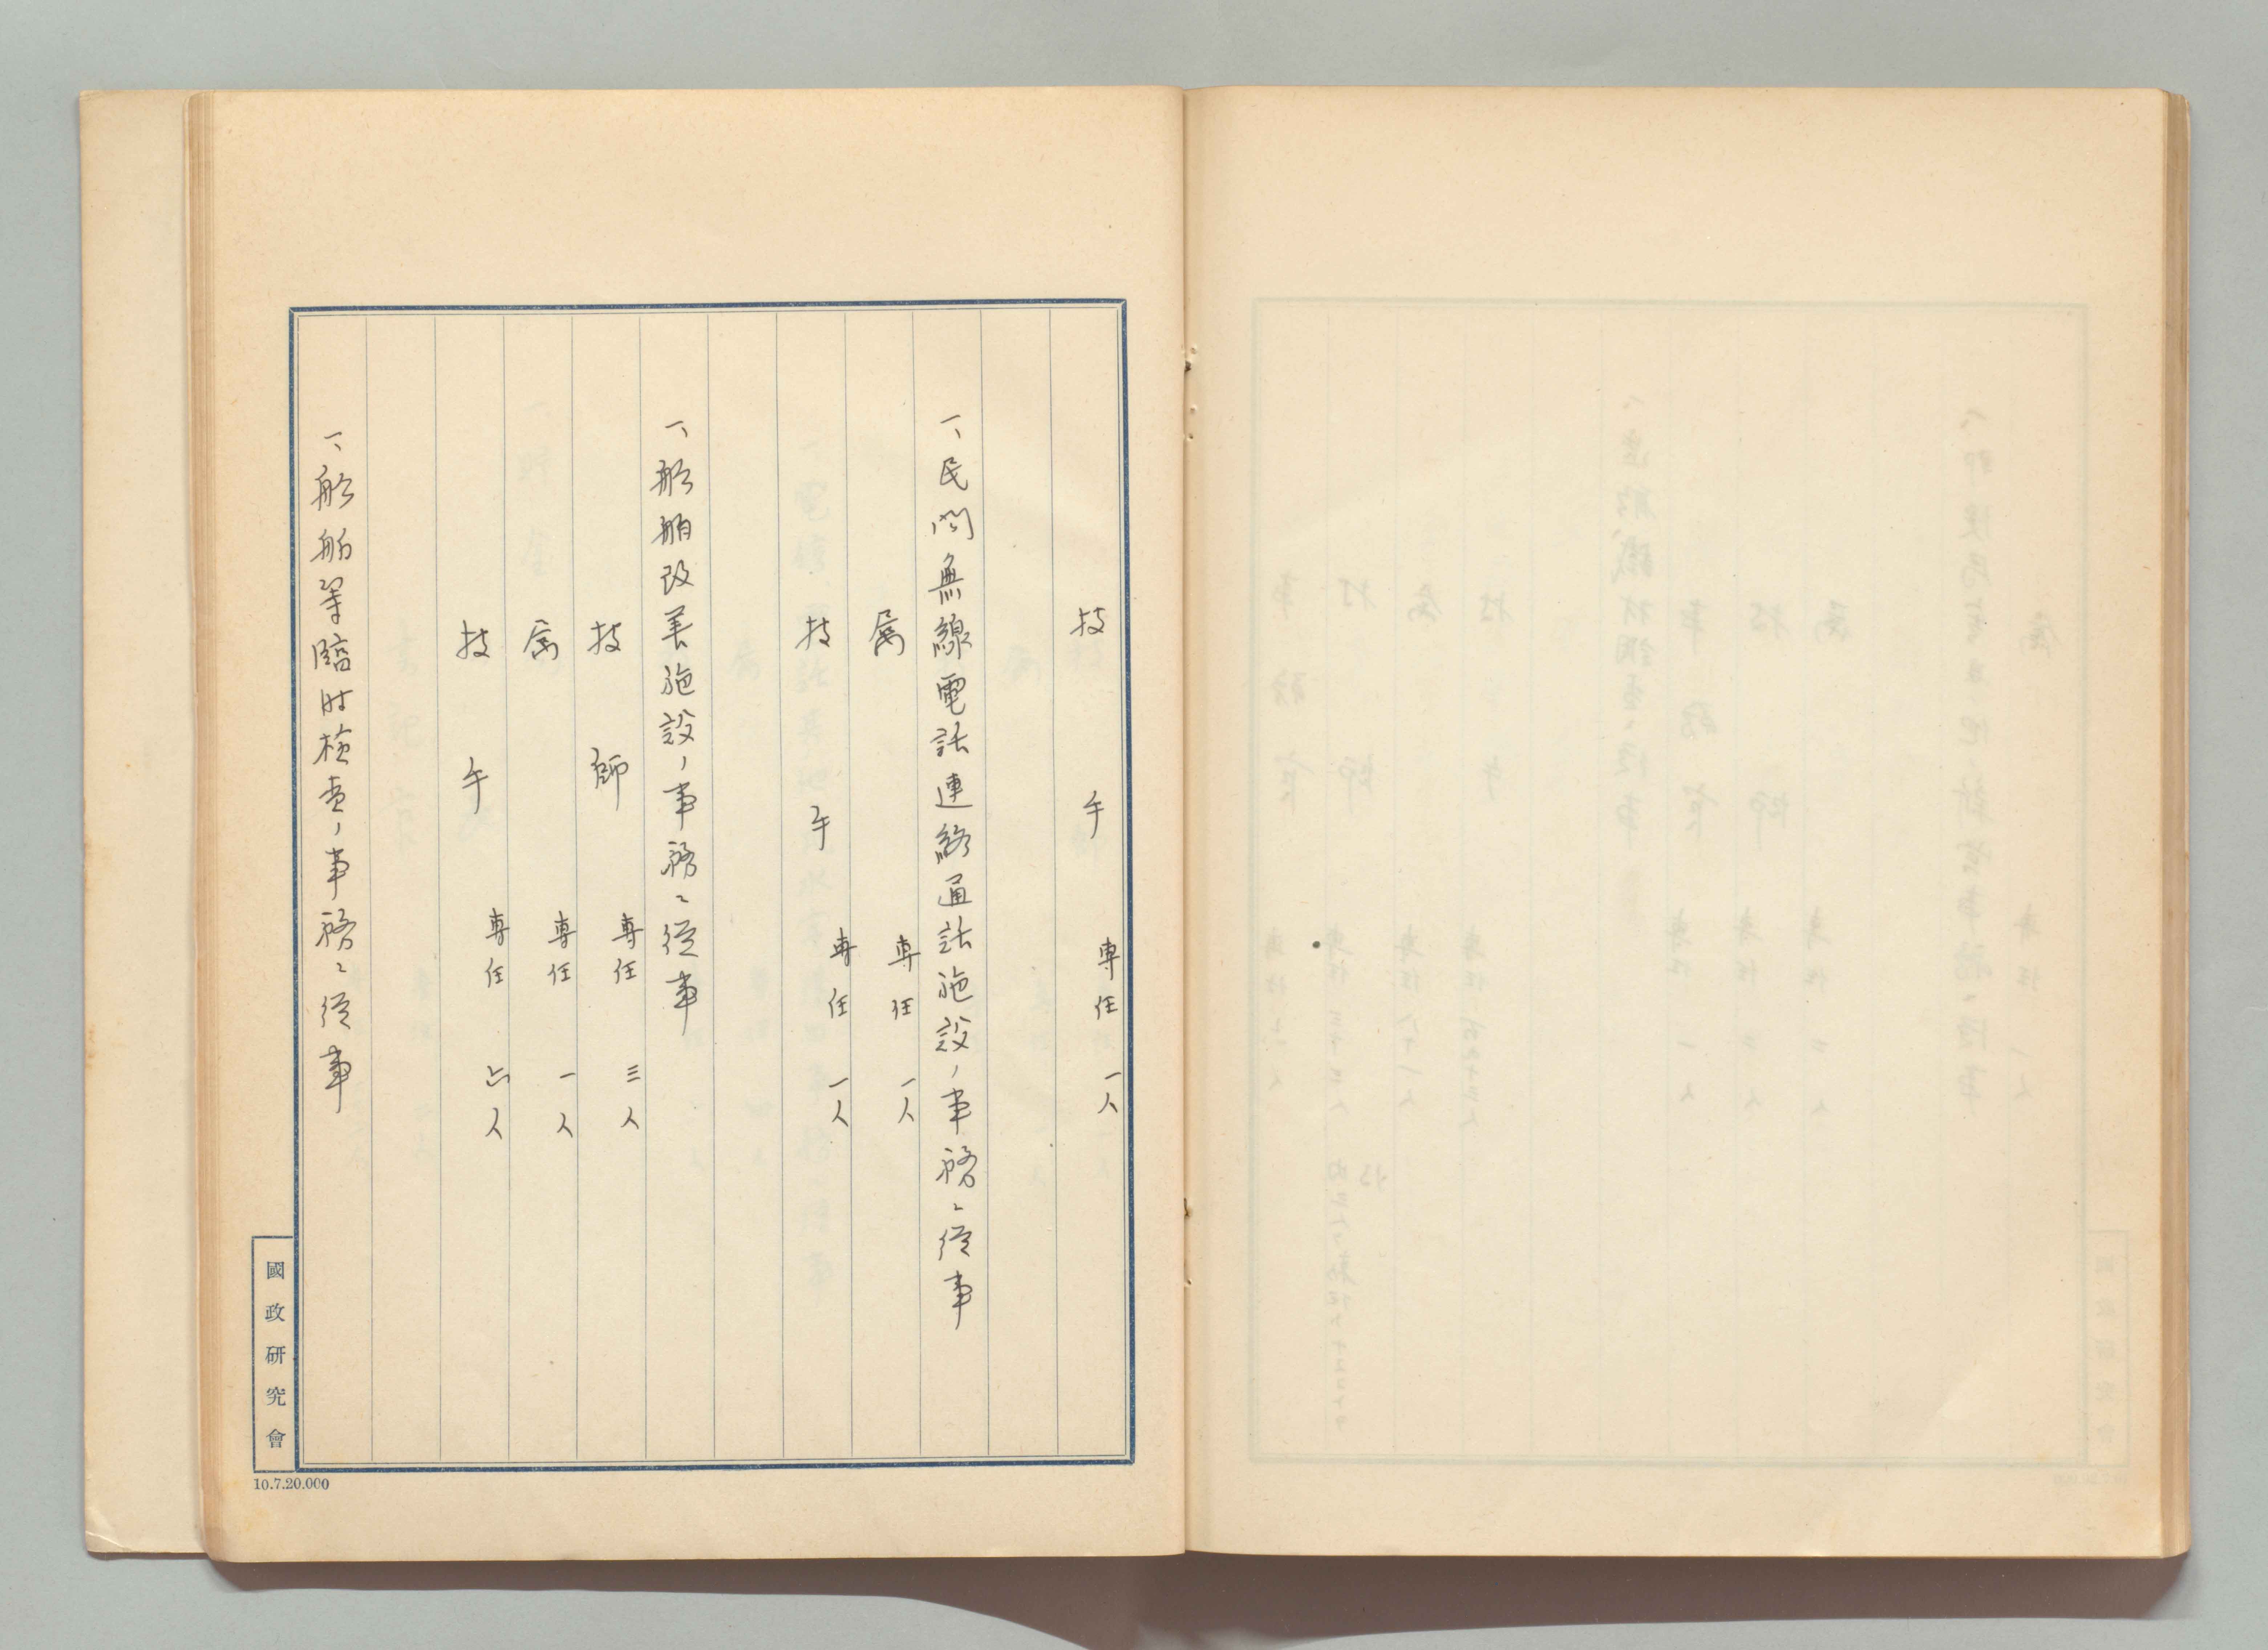 技手 専任 一人
一、民間無線電話連絡通話施設ノ事務ニ従事
属 専任 一人
技手 専任 一人
一、船舶改善施設ノ事務ニ従事
技師 専任 三人
属 専任 一人
技手 専任 六人
一、船舶等臨時検査ノ事務ニ従事
國政研究會
10.7.20.000